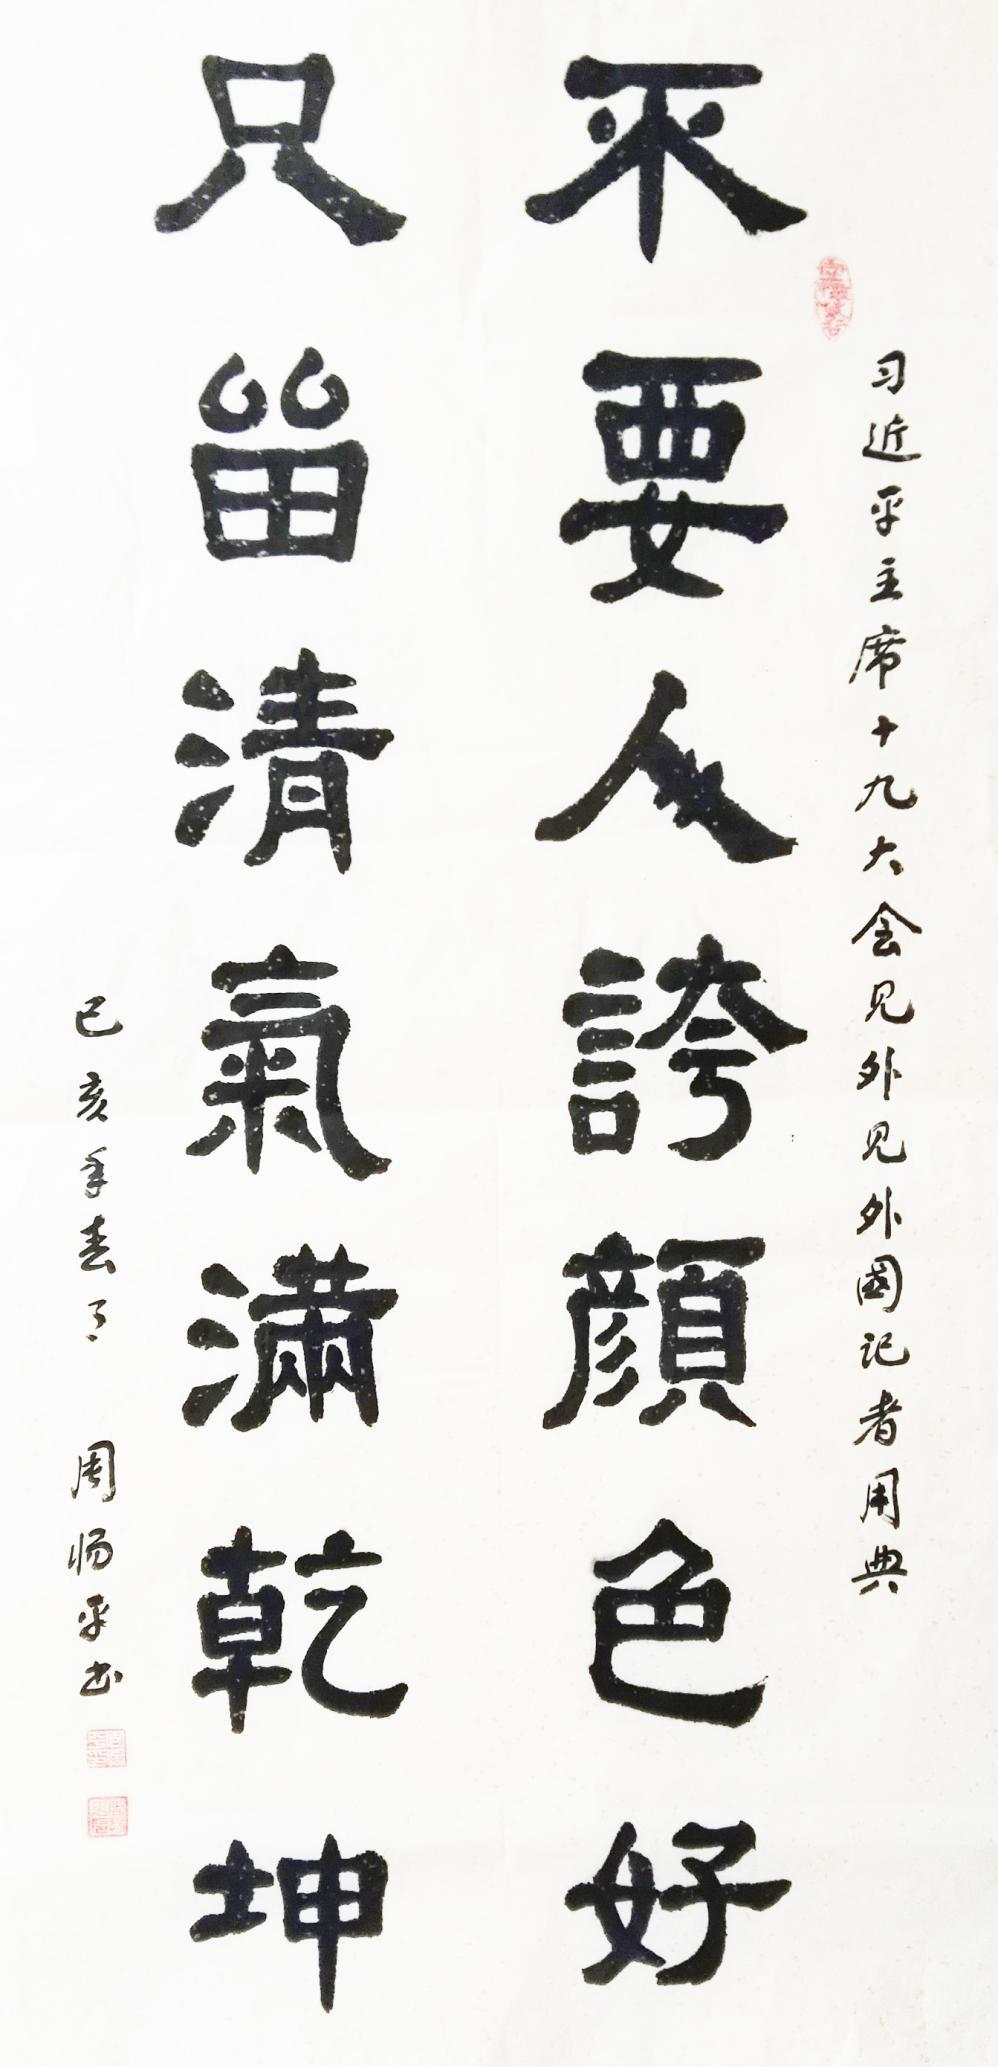 习近平主席十九大会见外见外國记者用典
不要人誇顔色好
只畱清氣滿乾坤
己亥年春月 周炀平书